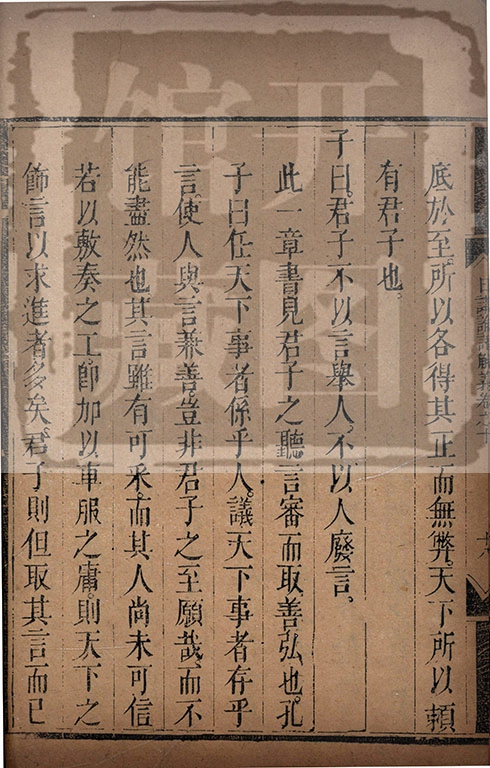 底於至。所以各得其正而無弊。天下所以賴
有君子也。
子曰。君子不以言舉人。不以人廢言。
此一章書見君子之聽言審而取善弘也。孔
子曰任天下事者係乎人。議天下事者存乎
言。使人與言兼善。豈非君子之至願哉。而不
能盡然也。其言雖有可采。而其人尚未可信
若以敷奏之工。卽加以車服之庸。則天下之
飾言以求進者多矣。君子則但取其言而已